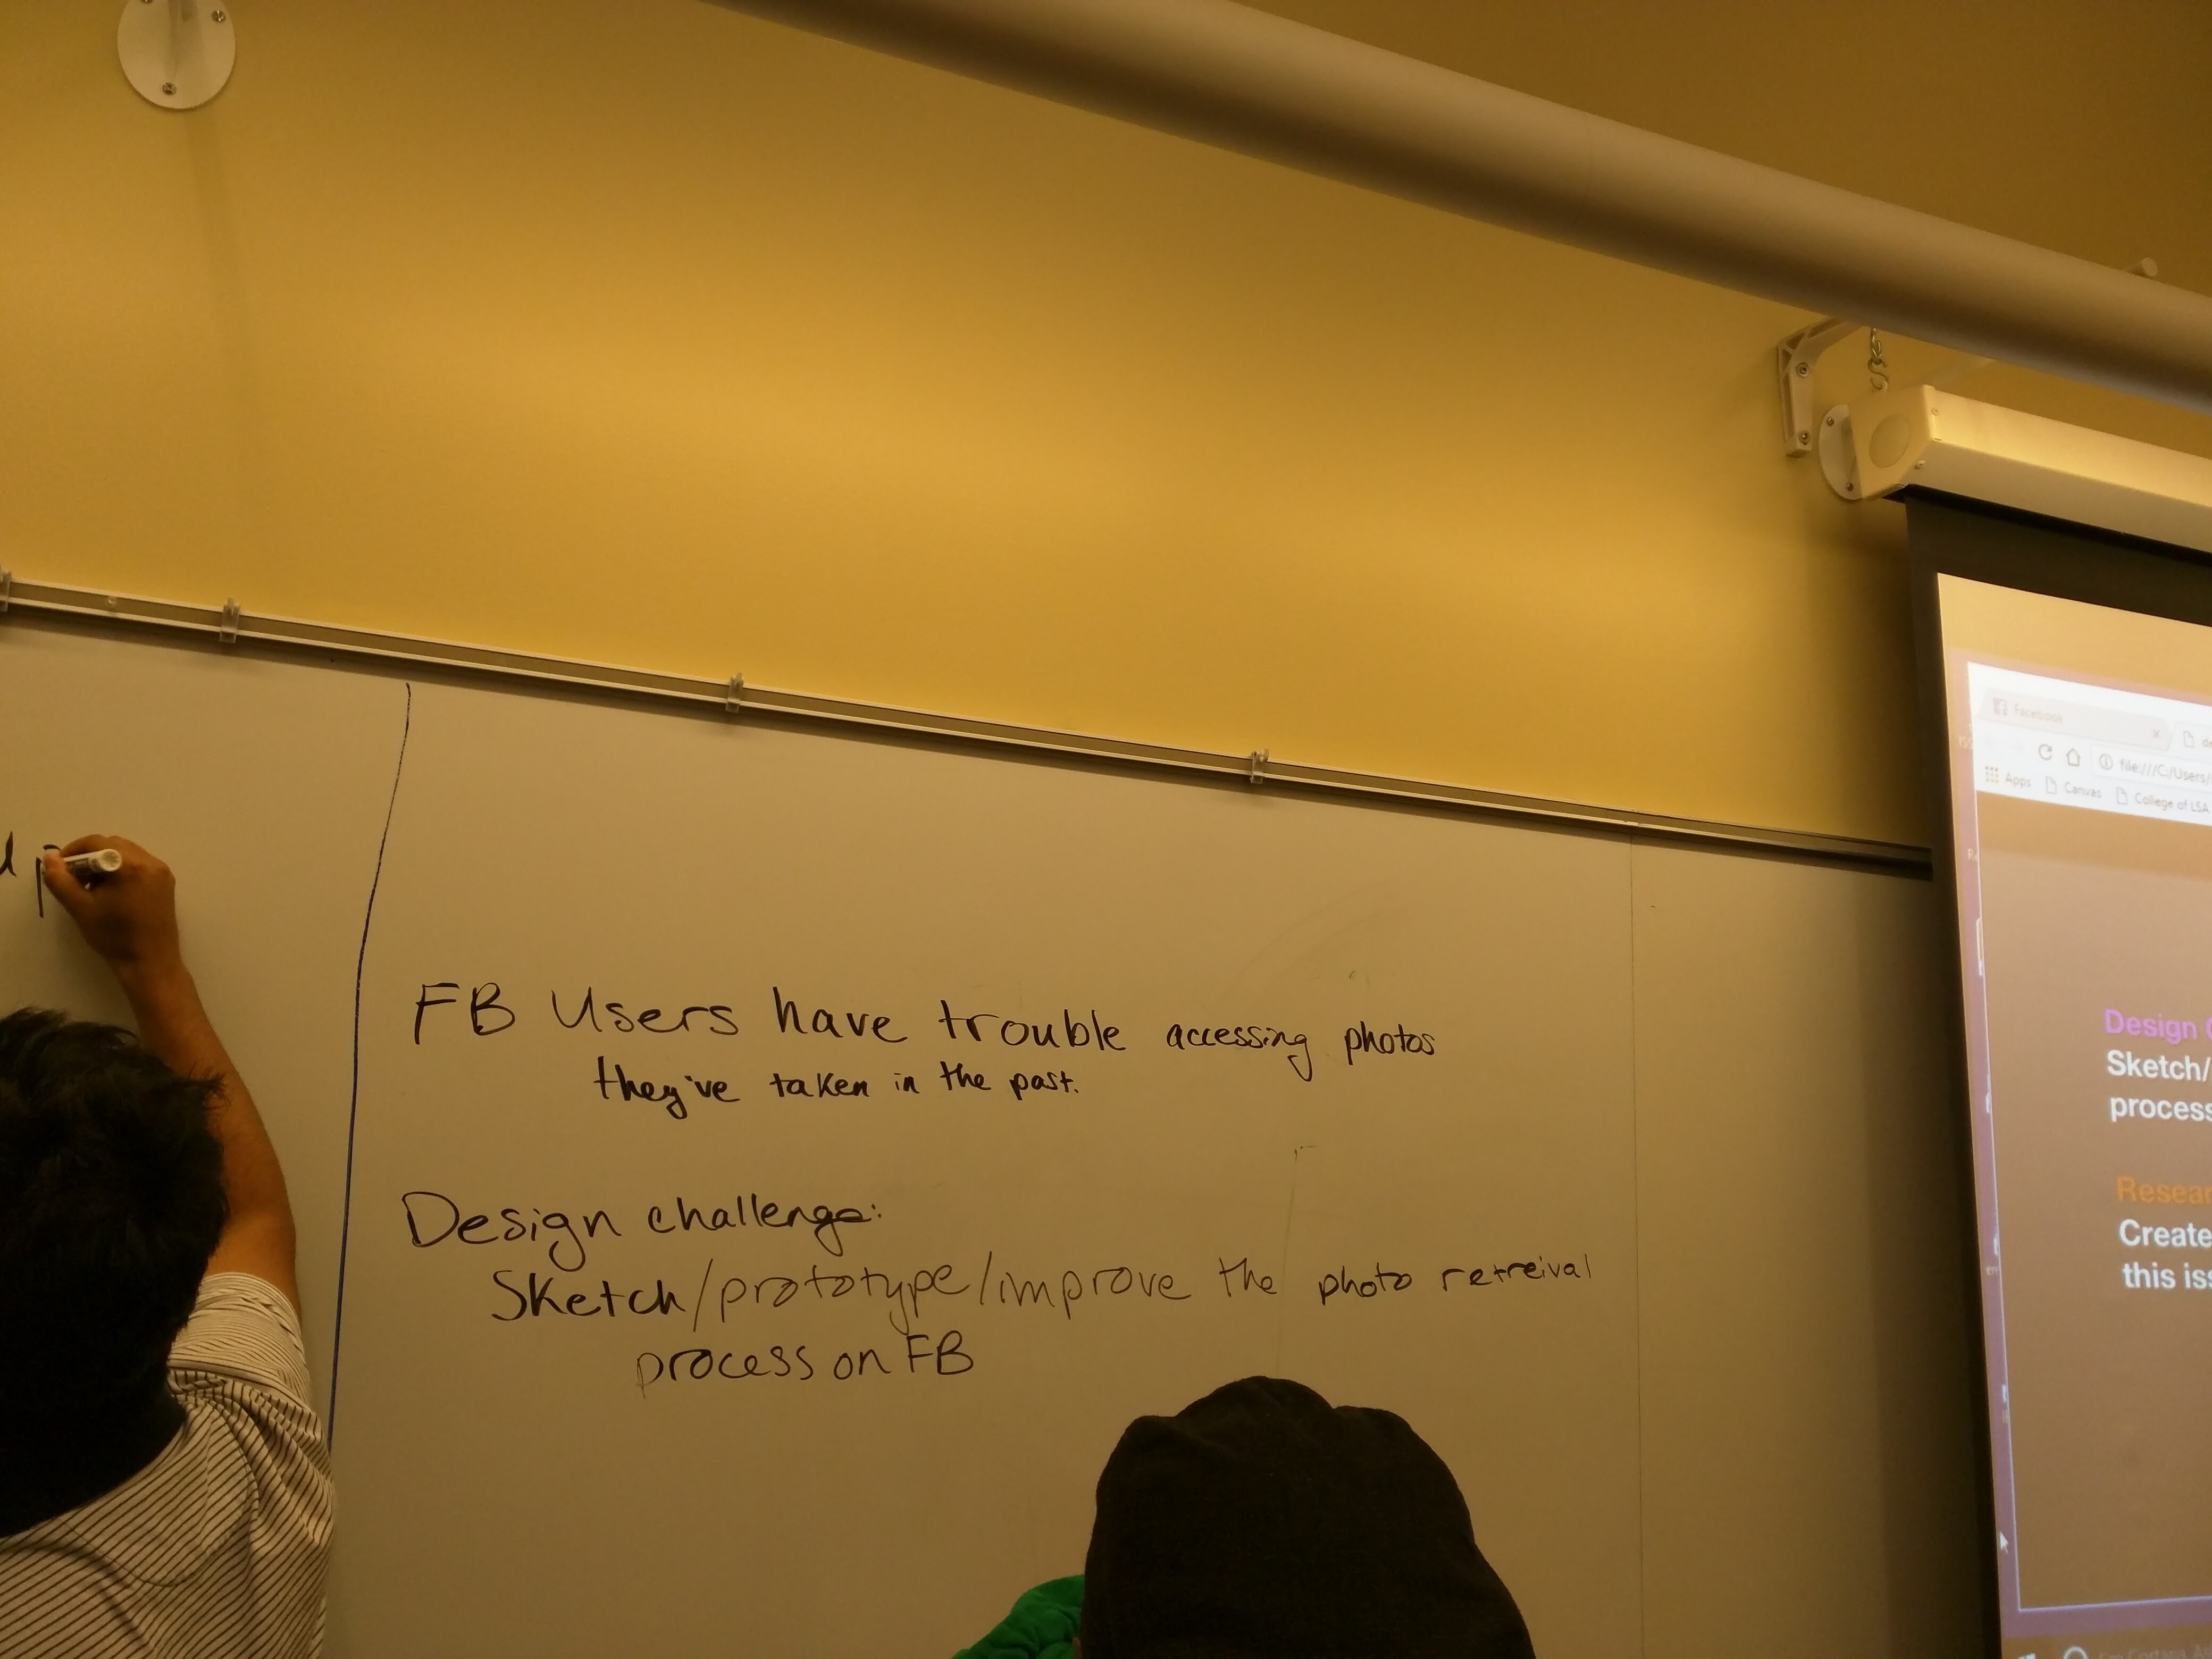 FB Users have trouble accessing photos
they've taken in the past.
Design challenge:
Sketch/prototype/improve the photo retreival
process on FB
Facebook
file:///C:/Users/
Apps Canvas College of LSA
Design
Sketch/
process
Create
this